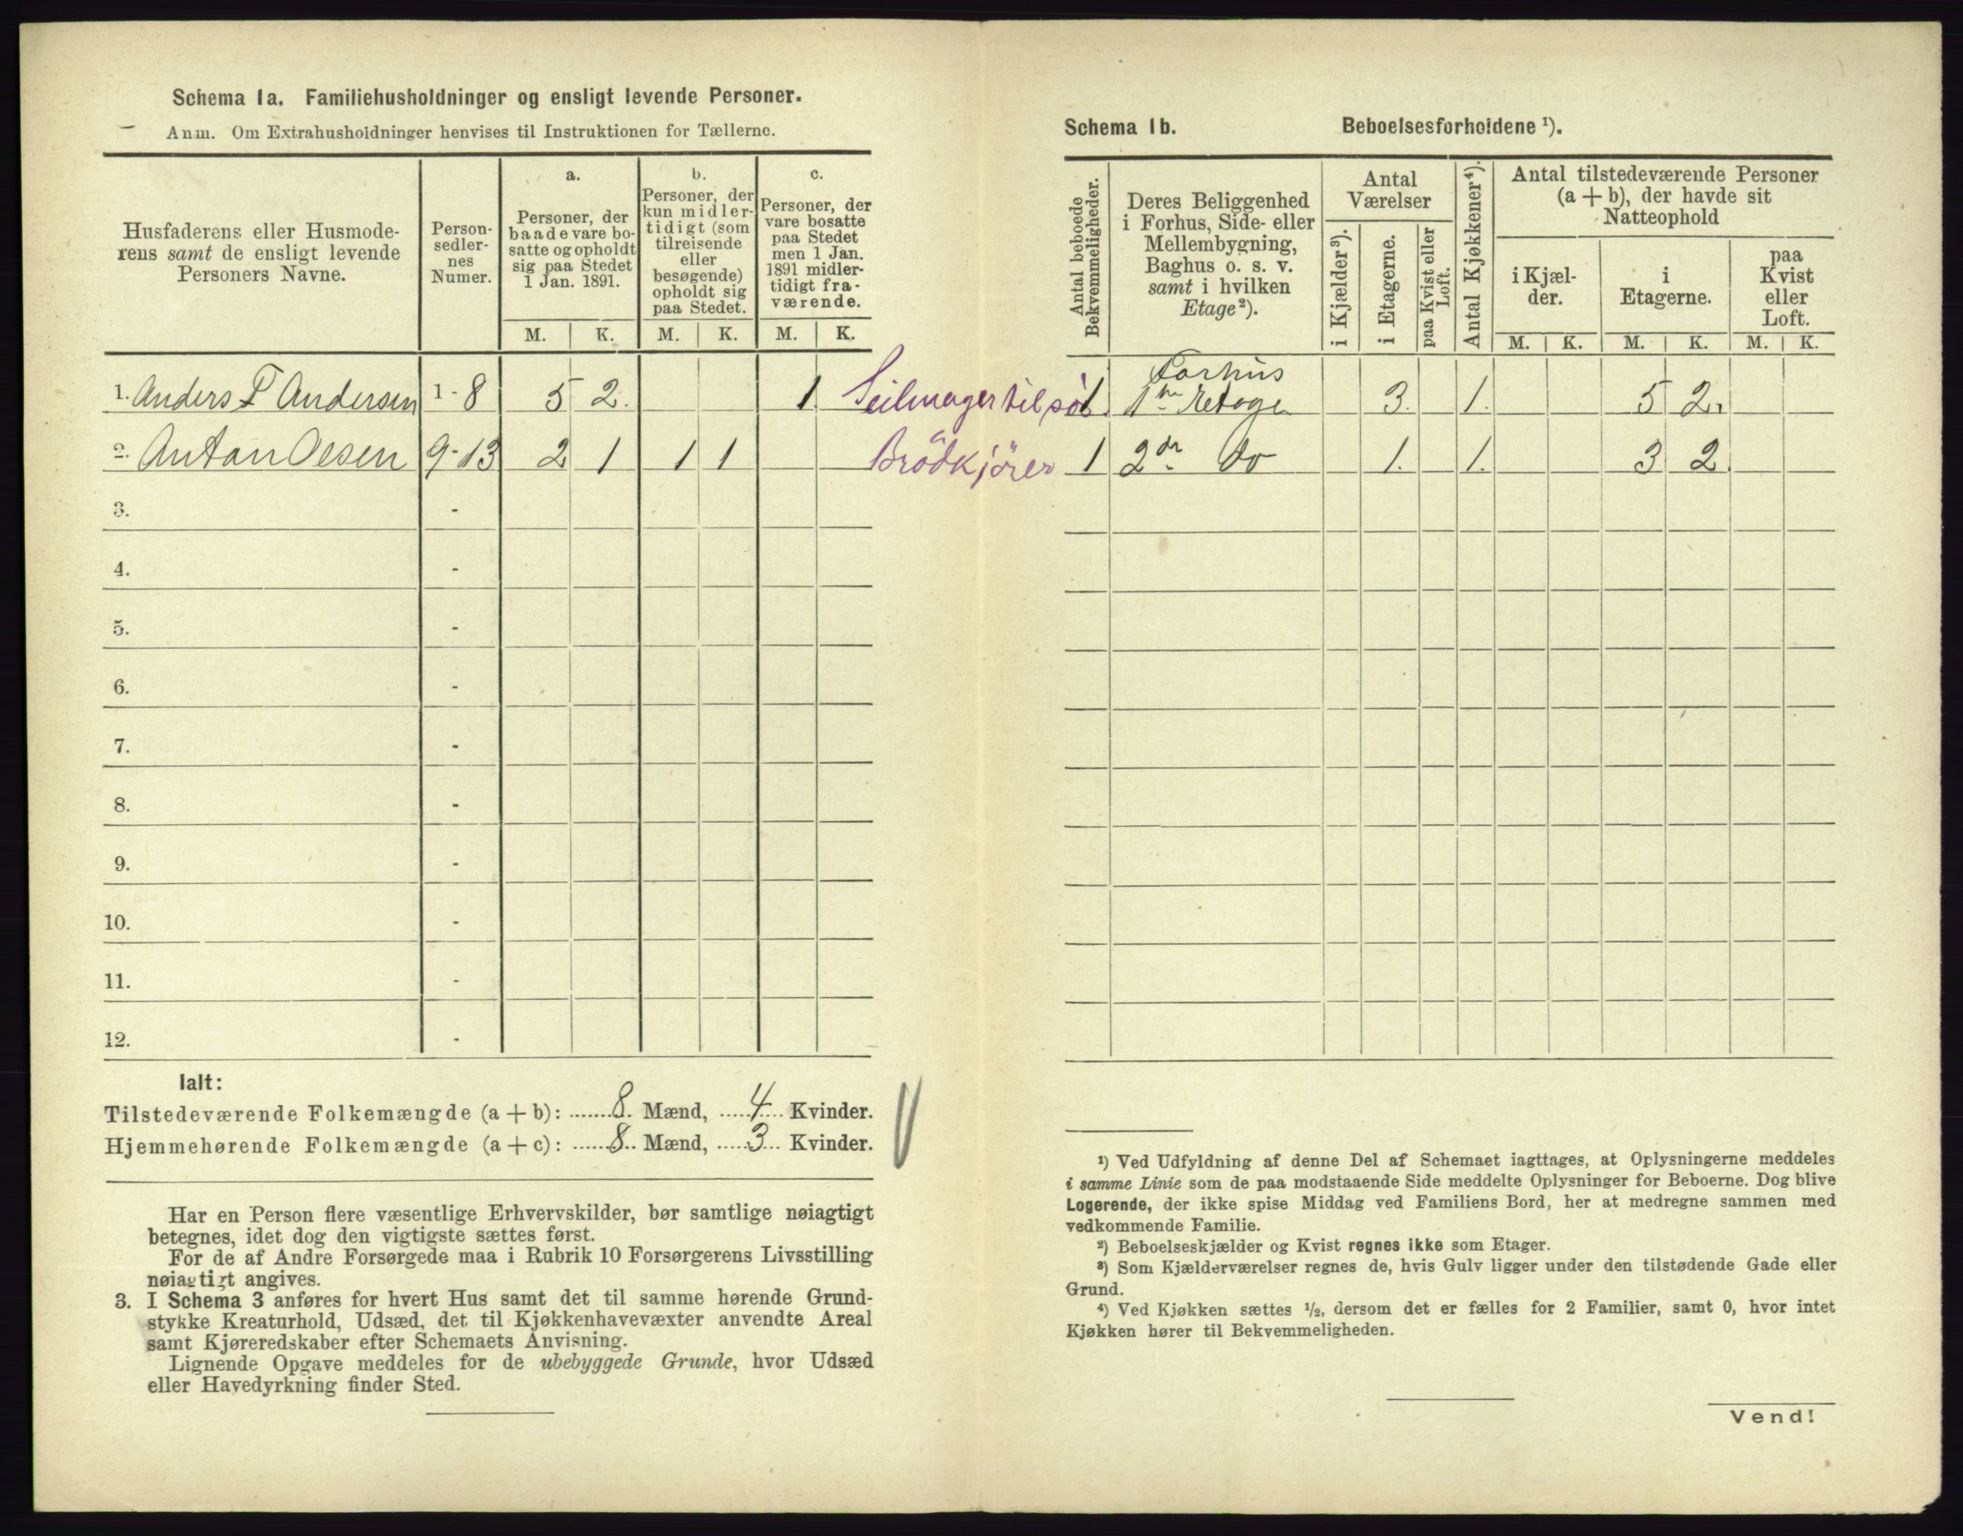 Schema 1a. Familiehusholdninger og ensligt levende Personer.
Anm. Om Extrahusholdninger henvises til Instruktionen for Tællerne.
Husfaderens eller Husmoderens samt de ensligt levende Personers Navne.
Personsedlernes Numer.
a.
Personer, der baade vare bosatte og opholdt sig paa Stedet 1 Jan. 1891.
b.
Personer, der kun midlertidigt (som tilreisende eller besøgende) opholdt sig paa Stedet.
c.
Personer, der vare bosatte paa Stedet men 1 Jan. 1891 midlertidigt fraværende.
M. K. M. K. M. K.
1. Anders T Andersen 1-8 5 2. 1 Seilmager til sös
2. Anton Olsen 9-13 2 1 1 1 Brödkjörer
3. -
4. -
5. -
6. -
7. -
8. -
9. -
10. -
11. -
12. -
Ialt:
Tilstedeværende Folkemængde (a + b): 8 Mænd, 4 Kvinder.
Hjemmehørende Folkemængde (a + c): 8 Mænd, 3 Kvinder.
Har en Person flere væsentlige Erhvervskilder, bør samtlige nøiagtigt
betegnes, idet dog den vigtigste sættes først.
For de af Andre Forsørgede maa i Rubrik 10 Forsørgerens Livsstilling
nøiagtigt angives.
3. I Schema 3 anføres for hvert Hus samt det til samme hørende Grund-
stykke Kreaturhold, Udsæd, det til Kjøkkenhavevæxter anvendte Areal
samt Kjøreredskaber efter Schemaets Anvisning.
Lignende Opgave meddeles for de ubebyggede Grunde, hvor Udsæd
eller Havedyrkning finder Sted.
Schema 1b. Beboelsesforholdene ¹).
Antal beboede Bekvemmeligheder.
Deres Beliggenhed i Forhus, Side- eller Mellembygning, Baghus o. s. v. samt i hvilken Etage²).
Antal Værelser
i Kjælder³).
i Etagerne.
paa Kvist eller Loft.
Antal Kjøkkener⁴).
Antal tilstedeværende Personer (a + b), der havde sit Natteophold
i Kjælder.
i Etagerne.
paa Kvist eller Loft.
M. K. M. K. M. K.
1 Forhus 1ste Etage 3. 1. 5 2.
1 2den do 1. 1. 3 2
¹) Ved Udfyldning af denne Del af Schemaet iagttages, at Oplysningerne meddeles
i samme Linie som de paa modstaaende Side meddelte Oplysninger for Beboerne. Dog blive
Logerende, der ikke spise Middag ved Familiens Bord, her at medregne sammen med
vedkommende Familie.
²) Beboelseskjælder og Kvist regnes ikke som Etager.
³) Som Kjælderværelser regnes de, hvis Gulv ligger under den tilstødende Gade eller
Grund.
⁴) Ved Kjøkken sættes ½, dersom det er fælles for 2 Familier, samt 0, hvor intet
Kjøkken hører til Bekvemmeligheden.
Vend!